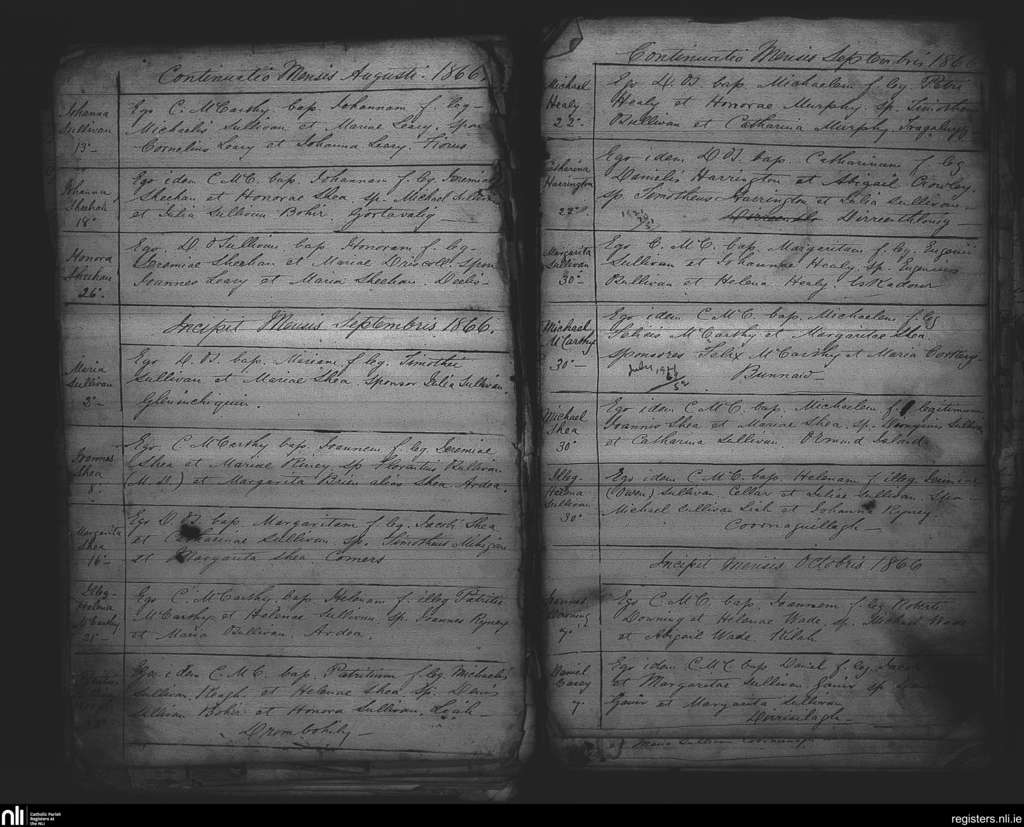 Continuatio Mensis Augusti. 1866.
Johanna
Sullivan
13-
Ego C. McCarthy bap. Johannam f. leg-
Michaelis Sullivan et Mariae Leary. spon
Cornelius Leary et Johanna Leary.
Johanna
Sheehan
18-
Ego idem C. McC. bap. Johannam f. leg. Jeremiae
Sheehan et Honorae Shea. sp. Michael Sullivan
et Julia Sullivan Boher. Gortavalig-
Honora
Sheehan
26-
Ego. D. O'Sullivan bap. Honoram f. leg-
Jeremiae Sheehan et Mariae Driscoll. Spon
Joannes Leary et Maria Sheehan.
Incipit Mensis Septembris 1866.
Maria
Sullivan
3-
Ego D. OS. bap. Mariam f. leg. Timothei
Sullivan et Mariae Shea. Sponsor Julia Sullivan
Gleninchiquin.
Joannes
Shea
8-
Ego C McCarthy bap. Joannem f. leg. Jeremiae
Shea et Mariae sp Florentius OSullivan
(M.D.) et Margarita Brien alias Shea. Ardea.
Margarita
Shea
16-
Ego D. OS. bap. Margaritam f. leg. Jacob Shea
et Catharinae Sullivan sp. Timotheus Miligan
et Margarita Shea Comers
Illeg-
Helena
McCarthy
21-
Ego C. McCarthy. bap. Helenam f. illeg Patritii
McCarthy et Helenae Sullivan sp. Joannes
et Maria OSullivan. Ardea.
Ego idem C. McC. bap. Patritium f. leg Michaelis
Sullivan et Helenae Shea sp. Denis
Sullivan Boher et Honora Sullivan
Drombohilly-
Continuatio Mensis Septembris 1866
Michael
Healy
22-
Ego D. OS bap Michaelem f. leg Petri
Healy et Honorae Murphy. sp. Timotheus
OSullivan et Catharina Murphy.
Catharina
Harrington
22-
Ego idem D OS. bap. Catharinam f. leg
Danielis Harrington et Abigail Crowley.
sp. Timotheus Harrington et Julia Sullivan-
Margarita
Sullivan
30-
Ego C. McC. bap. Margaritam f. leg Eugenii
Sullivan et Johannae Healy. sp. Eugenius
OSullivan et Helena Healy.
Michael
McCarthy
30-
Ego idem C McC. bap. Michaelem f. leg
Felicis McCarthy et Margaritae Shea.
sponsores Felix McCarthy et Maria
Bunnaw-
Michael
Shea
30
Ego idem C McC. bap. Michaelem f legitimum
Joannis Shea et Mariae Shea. sp. Sullivan
et Catharina Sullivan. Ormond Island
Illeg-
Helena
Sullivan
30-
Ego idem C McC. bap Helenam f illeg.
(Owen) Sullivan et Juliae Sullivan. Spon-
Michael Sullivan et Johanna
Coornaguillagh-
Incipit mensis Octobris 1866
Joannes
Downing
7-
Ego C McC. bap. Joannem f. leg Roberti
Downing et Helenae Wade. sp. Michael Wade
et Abigail Wade Kilah
Daniel
7-
Ego idem C McC bap Daniel f. leg. Jacob
et Margaritae Sullivan
et Margarita Sullivan
et Maria Sullivan
nli Catholic Parish
Registers at
the NLI
registers.nli.ie